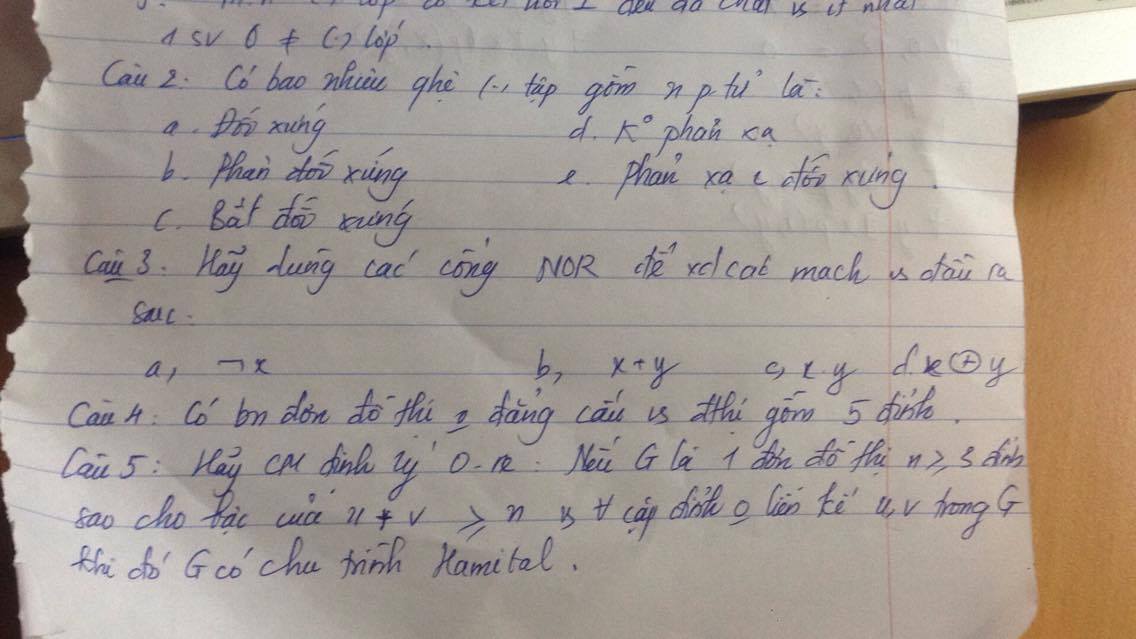 1 SV ở # (.) lớp.
Câu 2: Có bao nhiêu qhệ (.) tập gồm n p.tử là:
a. Đối xứng d. K° phản xạ
b. Phản đối xứng e. Phản xạ & đối xứng.
c. Bất đối xứng
Câu 3. Hãy dùng các cổng NOR để xd các mạch vs đầu ra
sau:
a, ¬x b, x+y c, x.y d. x⊕y
Câu 4: Có bn đơn đồ thị đẳng cấu vs đthị gồm 5 đỉnh.
Câu 5: Hãy CM định lý O-re: Nếu G là 1 đơn đồ thị n ≥ 3 đỉnh
sao cho bậc của u + v ≥ n vs ∀ cặp đỉnh liền kề u, v trong G
khi đó G có chu trình Hamital.